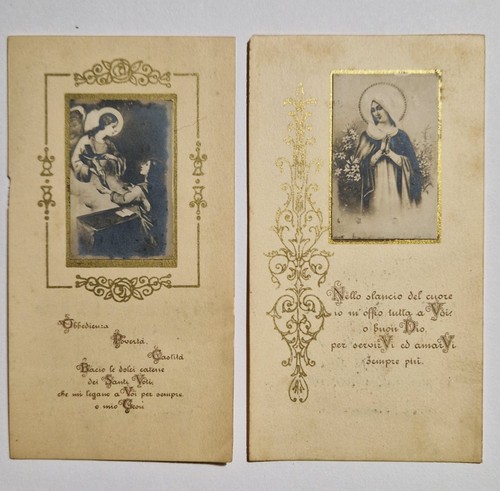 Obbedienza
Povertà
Castità
Bacio le dolci catene
dei Santi Voti,
che mi legano a Voi per sempre
o mio Gesù
Nello slancio del cuore
io m'offro tutta a Voi
o buon Dio
per servirVi ed amarVi
sempre più.